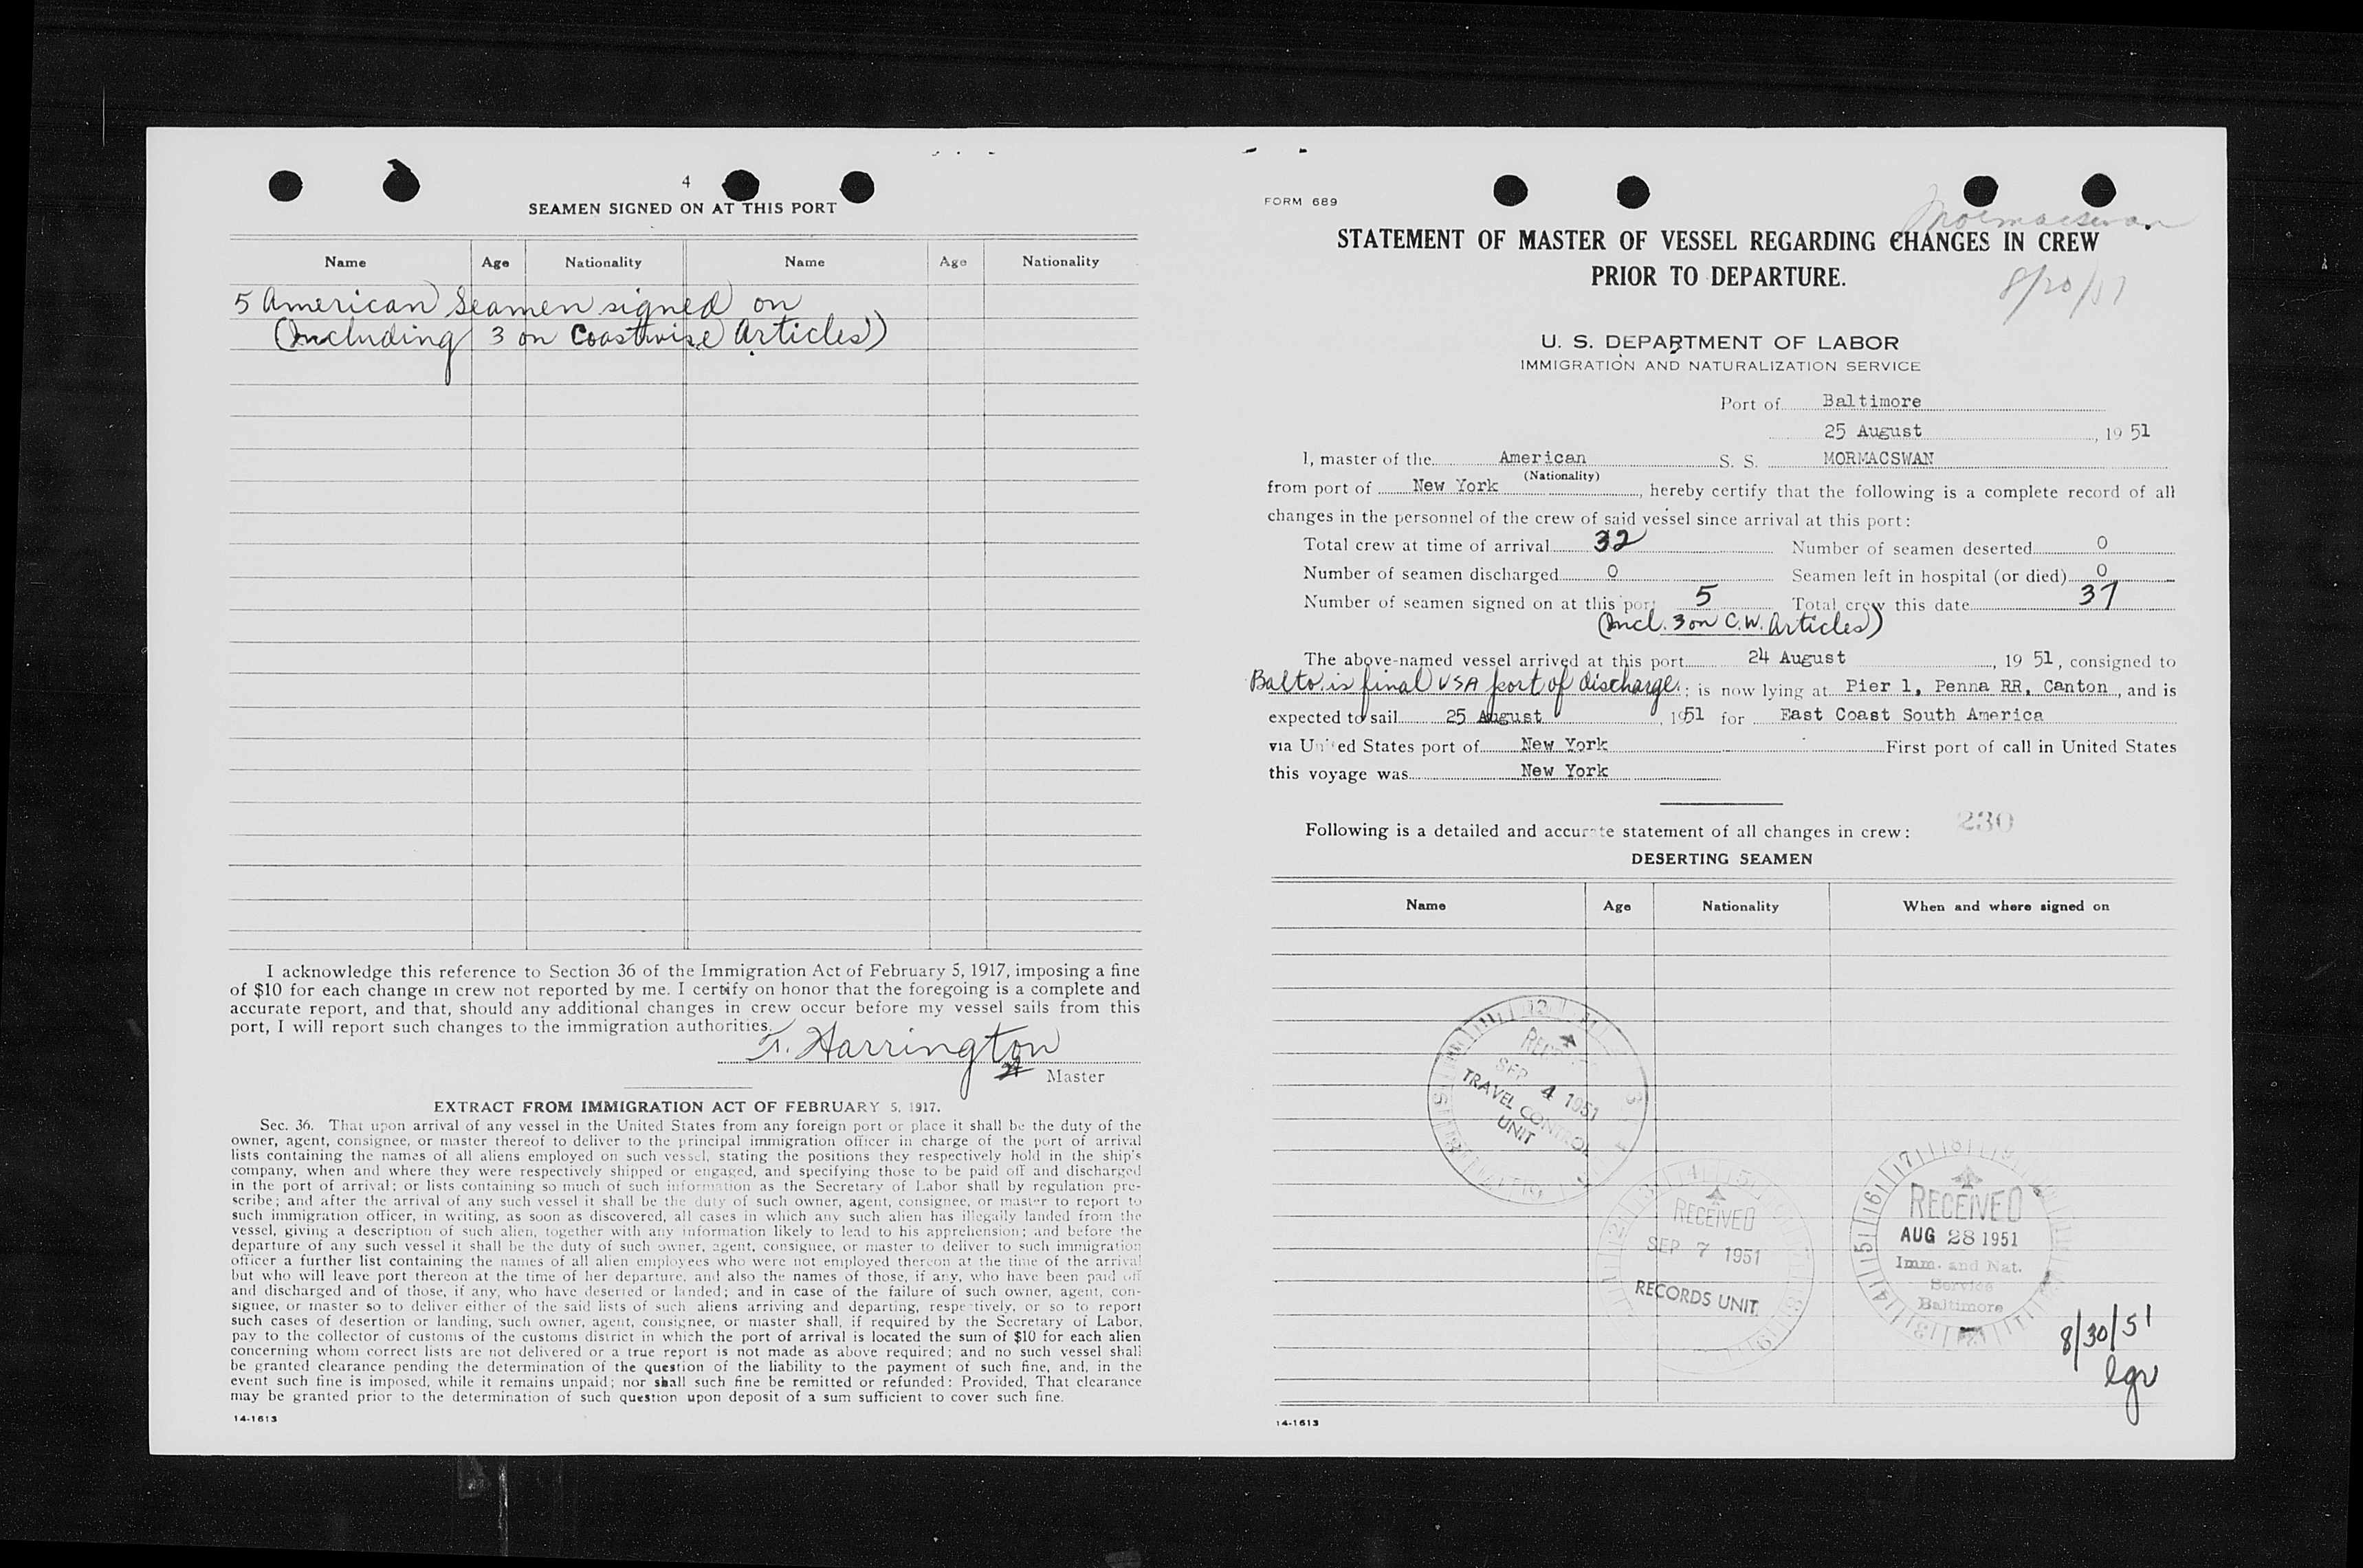 4
SEAMEN SIGNED ON AT THIS PORT
Name Age Nationality Name Age Nationality
5 American Seamen signed on
(Including 3 on Coastwise Articles)
I acknowledge this reference to Section 36 of the Immigration Act of February 5, 1917, imposing a fine
of $10 for each change in crew not reported by me. I certify on honor that the foregoing is a complete and
accurate report, and that, should any additional changes in crew occur before my vessel sails from this
port, I will report such changes to the immigration authorities.
Harrington
Master
EXTRACT FROM IMMIGRATION ACT OF FEBRUARY 5, 1917.
Sec. 36. That upon arrival of any vessel in the United States from any foreign port or place it shall be the duty of the
owner, agent, consignee, or master thereof to deliver to the principal immigration officer in charge of the port of arrival
lists containing the names of all aliens employed on such vessel, stating the positions they respectively hold in the ship's
company, when and where they were respectively shipped or engaged, and specifying those to be paid off and discharged
in the port of arrival; or lists containing so much of such information as the Secretary of Labor shall by regulation pre-
scribe; and after the arrival of any such vessel it shall be the duty of such owner, agent, consignee, or master to report to
such immigration officer, in writing, as soon as discovered, all cases in which any such alien has illegally landed from the
vessel, giving a description of such alien, together with any information likely to lead to his apprehension; and before the
departure of any such vessel it shall be the duty of such owner, agent, consignee, or master to deliver to such immigration
officer a further list containing the names of all alien employees who were not employed thereon at the time of the arrival
but who will leave port thereon at the time of her departure, and also the names of those, if any, who have been paid off
and discharged and of those, if any, who have deserted or landed; and in case of the failure of such owner, agent, con-
signee, or master so to deliver either of the said lists of such aliens arriving and departing, respectively, or so to report
such cases of desertion or landing, such owner, agent, consignee, or master shall, if required by the Secretary of Labor,
pay to the collector of customs of the customs district in which the port of arrival is located the sum of $10 for each alien
concerning whom correct lists are not delivered or a true report is not made as above required; and no such vessel shall
be granted clearance pending the determination of the question of the liability to the payment of such fine, and, in the
event such fine is imposed, while it remains unpaid; nor shall such fine be remitted or refunded: Provided, That clearance
may be granted prior to the determination of such question upon deposit of a sum sufficient to cover such fine.
14-1613
FORM 689
Mormacswan
STATEMENT OF MASTER OF VESSEL REGARDING CHANGES IN CREW
PRIOR TO DEPARTURE.
8/20/51
U. S. DEPARTMENT OF LABOR
IMMIGRATION AND NATURALIZATION SERVICE
Port of Baltimore
25 August, 19 51
I, master of the American S. S. MORMACSWAN
(Nationality)
from port of New York, hereby certify that the following is a complete record of all
changes in the personnel of the crew of said vessel since arrival at this port:
Total crew at time of arrival 32 Number of seamen deserted 0
Number of seamen discharged 0 Seamen left in hospital (or died) 0
Number of seamen signed on at this port 5 Total crew this date 37
(Incl. 3 on C.W. Articles)
The above-named vessel arrived at this port 24 August, 19 51, consigned to
Balto. is final USA port of discharge.; is now lying at Pier 1, Penna RR, Canton, and is
expected to sail 25 August, 1951 for East Coast South America
via United States port of New York First port of call in United States
this voyage was New York
230
Following is a detailed and accurate statement of all changes in crew:
DESERTING SEAMEN
Name Age Nationality When and where signed on
RECEIVED
SEP 4 1951
TRAVEL CONTROL
UNIT
RECEIVED
SEP 7 1951
RECORDS UNIT
RECEIVED
AUG 28 1951
Imm. and Nat.
Service
Baltimore
8/30/51
lgr
14-1613